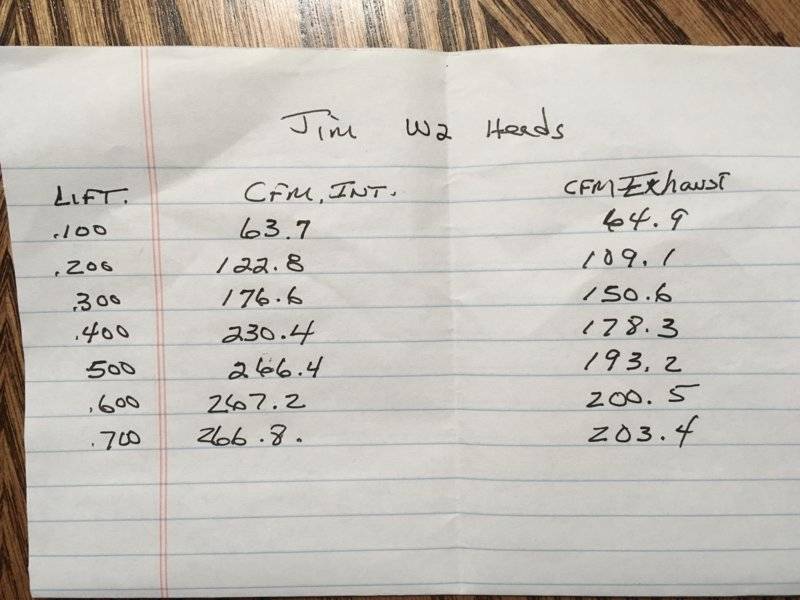 Jim W2 Heads
LIFT. CFM, INT. CFM Exhaust
.100 63.7 64.9
.200 122.8 109.1
.300 176.6 150.6
.400 230.4 178.3
500 266.4 193.2
.600 267.2 200.5
.700 266.8. 203.4